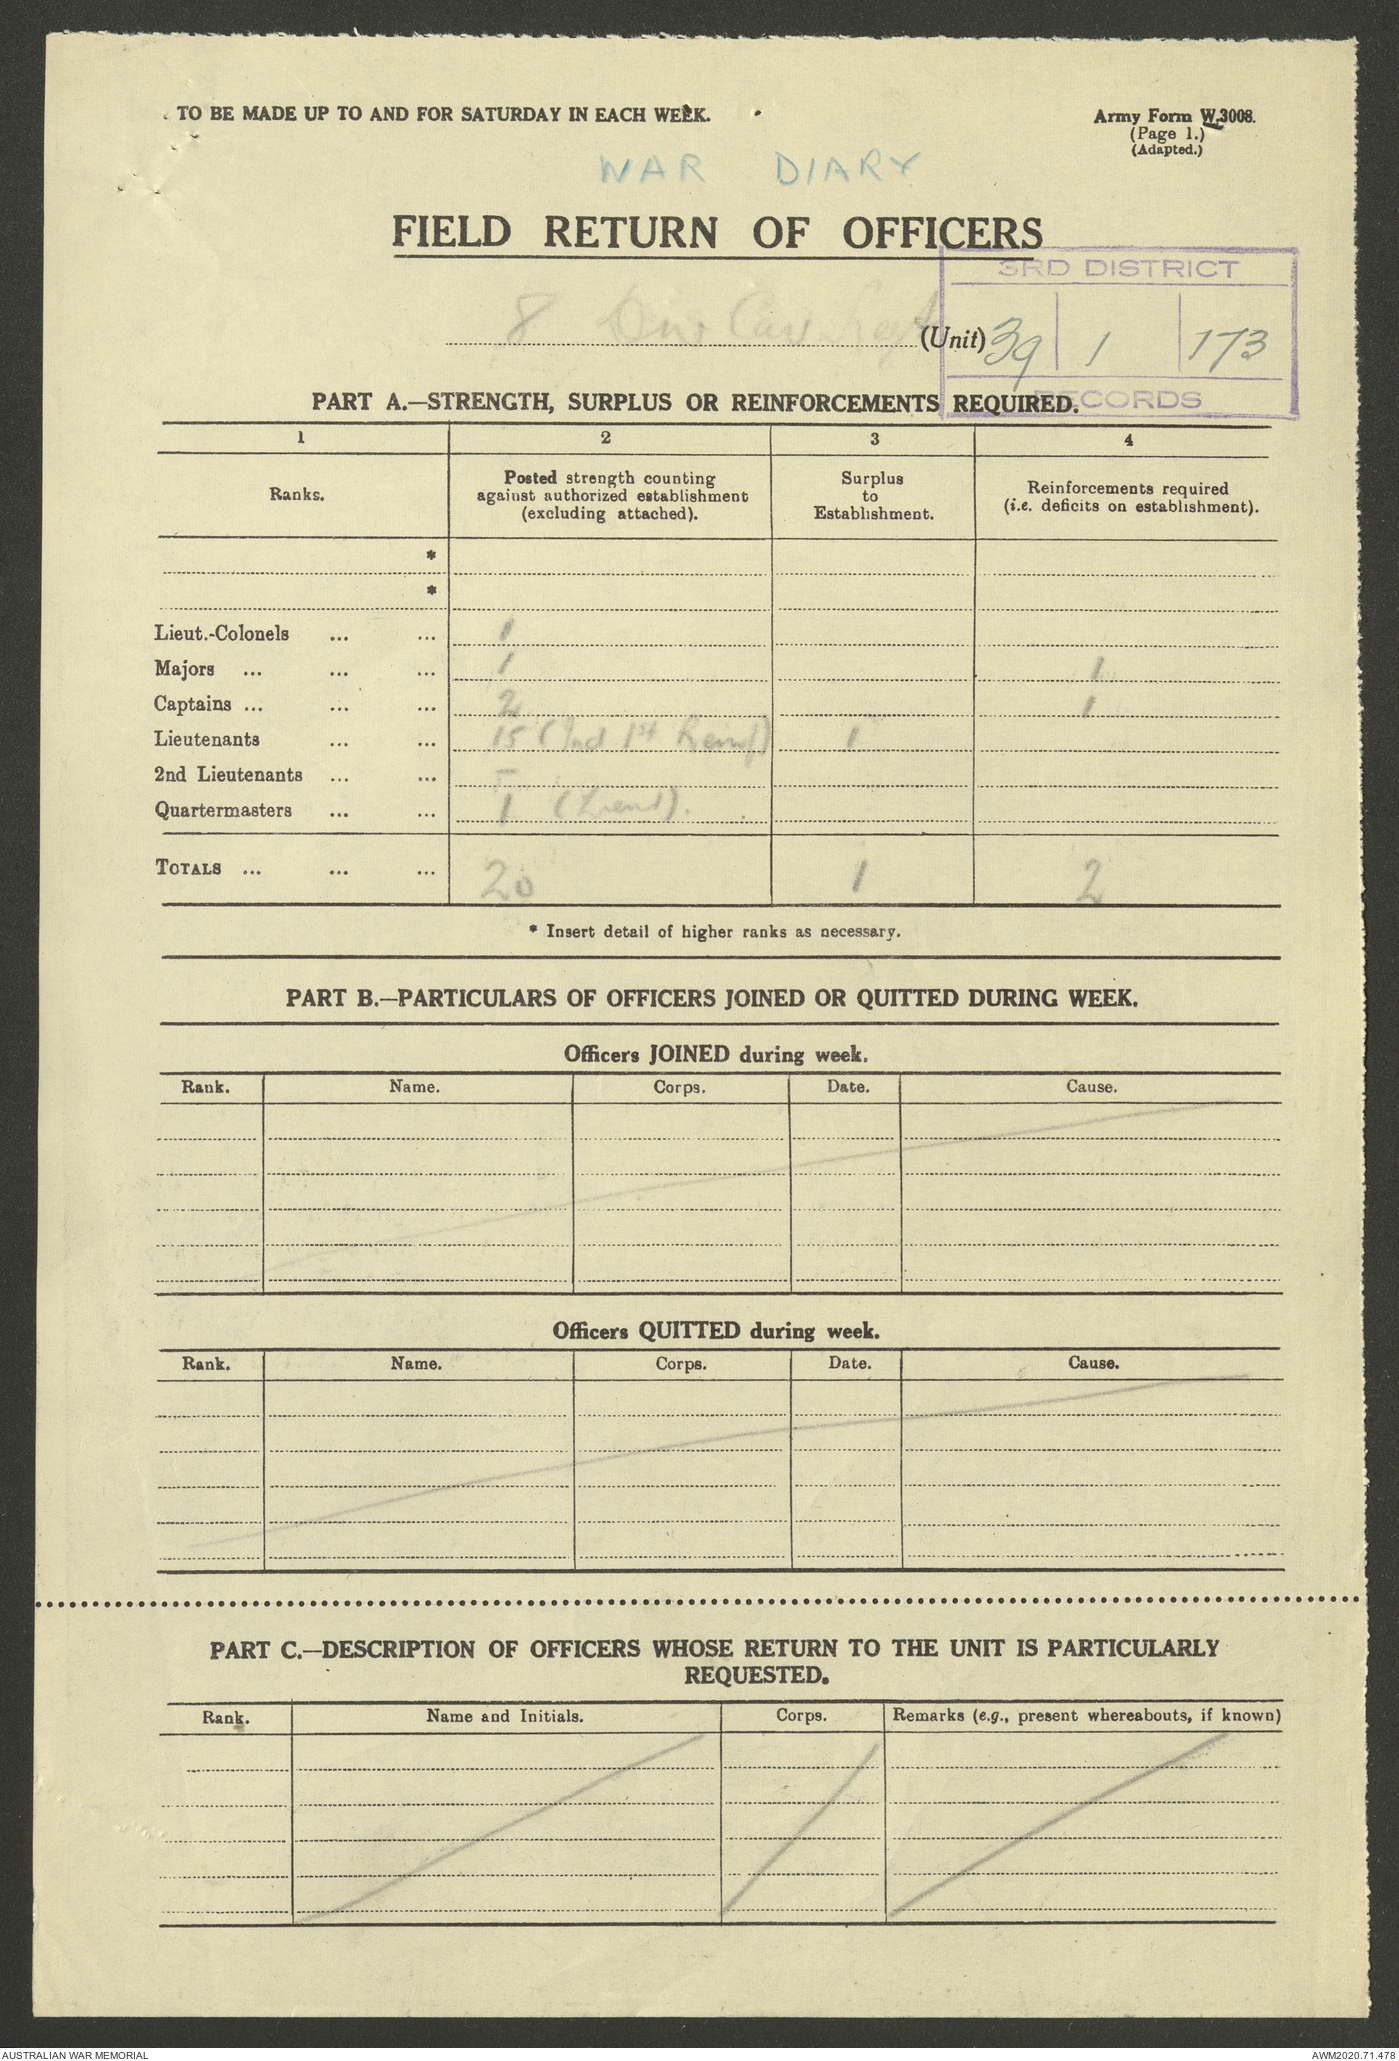 TO BE MADE UP TO AND FOR SATURDAY IN EACH WEEK.
Army Form W.3008.
(Page 1.)
(Adapted.)
WAR DIARY
FIELD RETURN OF OFFICERS
3RD DISTRICT
8 Div Cav Regt (Unit)
39 1 173
RECORDS
PART A.—STRENGTH, SURPLUS OR REINFORCEMENTS REQUIRED.
1 2 3 4
Ranks.
Posted strength counting
against authorized establishment
(excluding attached).
Surplus
to
Establishment.
Reinforcements required
(i.e. deficits on establishment).
*
*
Lieut.-Colonels ... ... 1
Majors ... ... ... 1 1
Captains ... ... ... 2 1
Lieutenants ... ... 15 (Incl 1st Reinf) 1
2nd Lieutenants ... ... —
Quartermasters ... ... 1 (Lieut).
TOTALS ... ... ... 20 1 2
* Insert detail of higher ranks as necessary.
PART B.—PARTICULARS OF OFFICERS JOINED OR QUITTED DURING WEEK.
Officers JOINED during week.
Rank. Name. Corps. Date. Cause.
Officers QUITTED during week.
Rank. Name. Corps. Date. Cause.
PART C.—DESCRIPTION OF OFFICERS WHOSE RETURN TO THE UNIT IS PARTICULARLY
REQUESTED.
Rank. Name and Initials. Corps. Remarks (e.g., present whereabouts, if known)
AUSTRALIAN WAR MEMORIAL
AWM2020.71.478